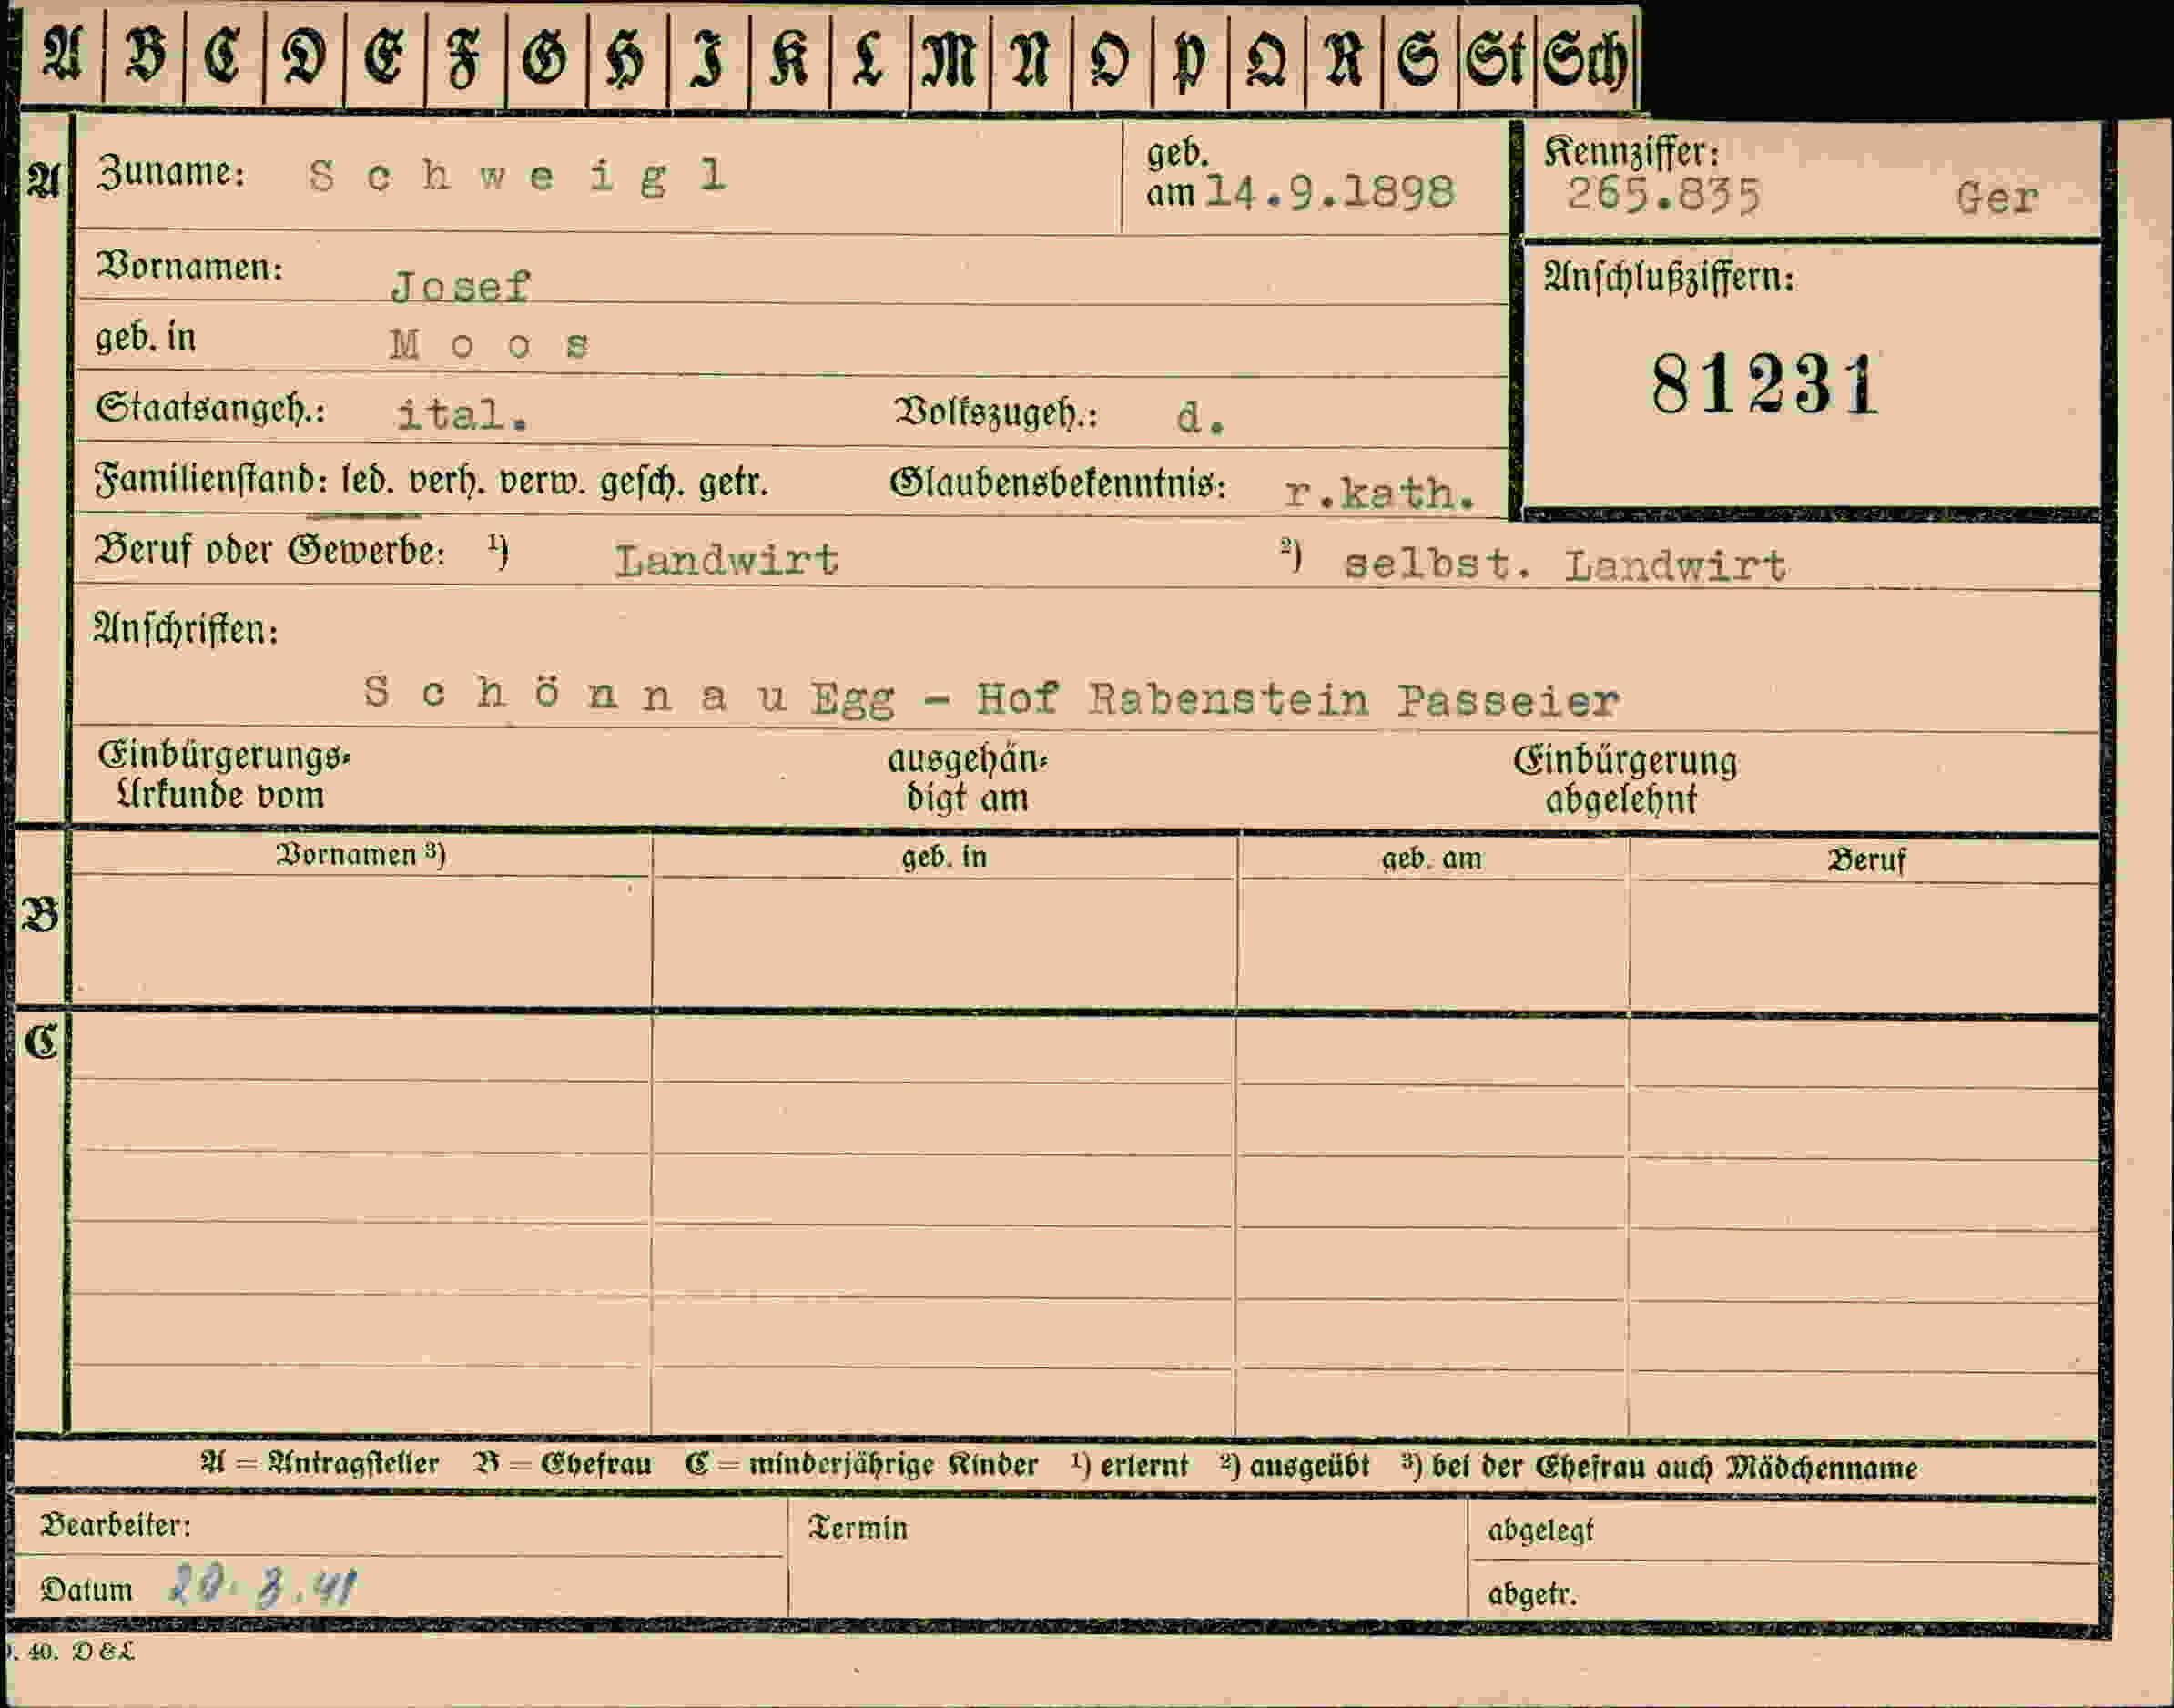 A B C D E F G H I K L M N O P Q R S St Sch
A Zuname: Schweigl geb. am 14.9.1898 Kennziffer: 265.835 Ger
Vornamen: Josef Anschlußziffern:
geb. in Moos 81231
Staatsangeh.: ital. Volkszugeh.: d.
Familienstand: led. verh. verw. gesch. getr. Glaubensbekenntnis: r.kath.
Beruf oder Gewerbe: ¹) Landwirt ²) selbst. Landwirt
Anschriften:
Schönnau Egg - Hof Rabenstein Passeier
Einbürgerungs- ausgehän- Einbürgerung
Urkunde vom digt am abgelehnt
Vornamen ³) geb. in geb. am Beruf
B
C
A = Antragsteller B = Ehefrau C = minderjährige Kinder ¹) erlernt ²) ausgeübt ³) bei der Ehefrau auch Mädchenname
Bearbeiter: Termin abgelegt
Datum 20.3.41 abgetr.
. 40. D & L